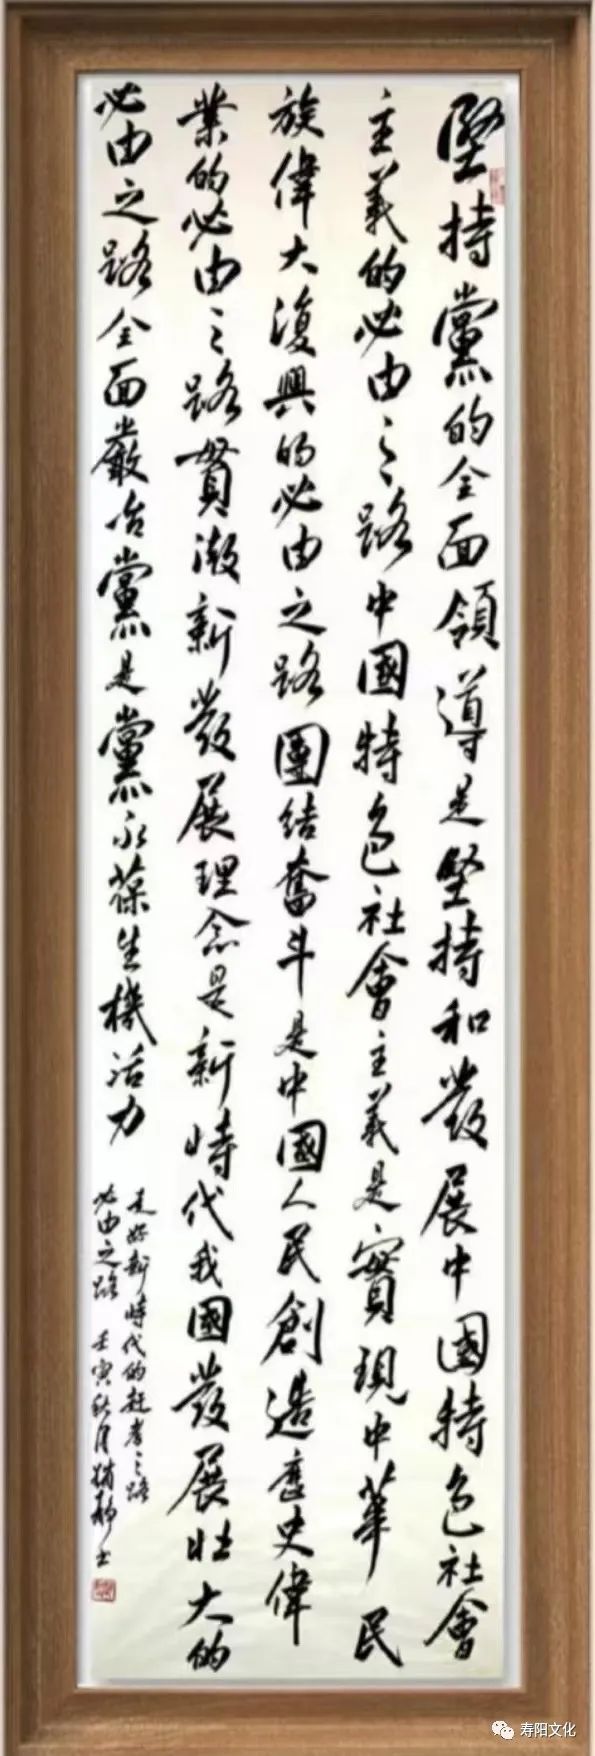 堅持黨的全面領導是堅持和發展中國特色社會
主義的必由之路中國特色社會主義是實現中華民
族偉大復興的必由之路團結奮斗是中國人民創造歷史偉
業的必由之路貫澈新發展理念是新時代我國發展壯大的
必由之路全面嚴治黨是黨永葆生機活力
走好新時代的赶考之路
必由之路 壬寅秋月 書
寿阳文化